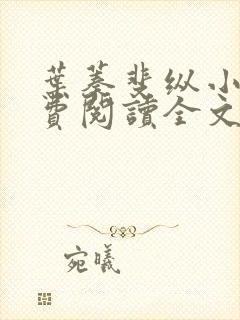 葉蓁斐纵小
費閱讀全文
宛曦